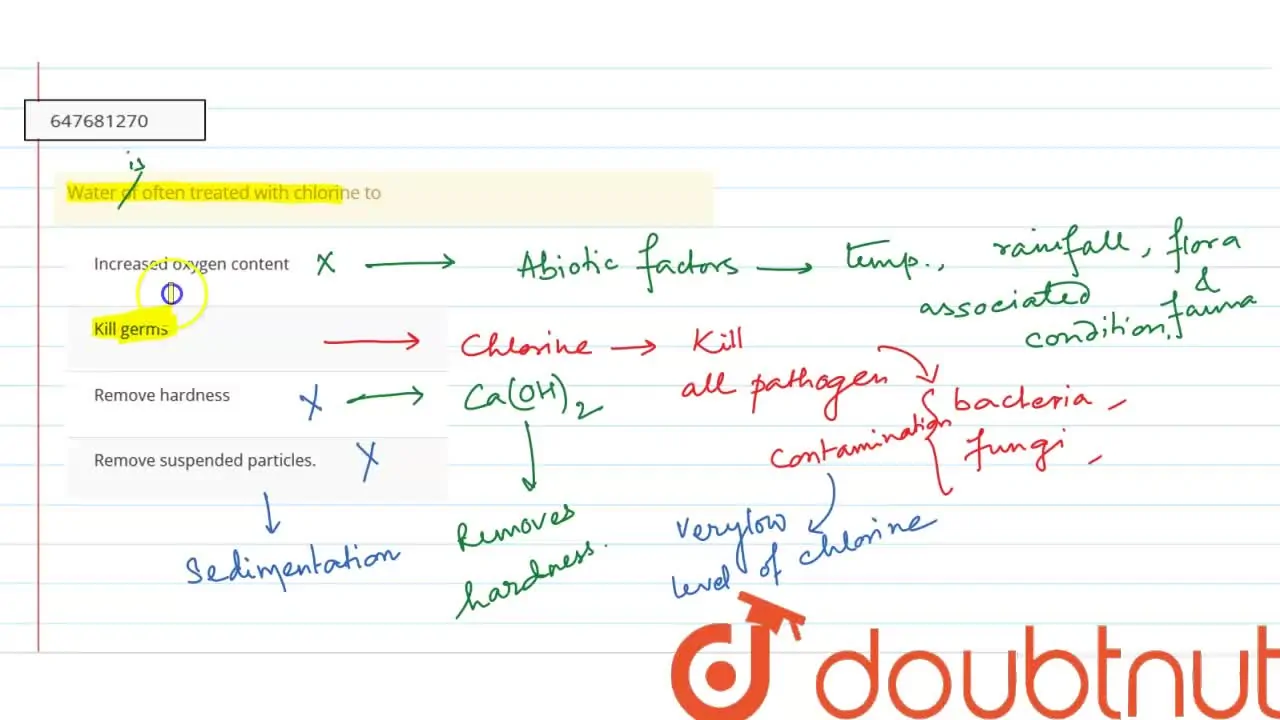 647681270
is
Water of often treated with chlorine to
Increased oxygen content x → Abiotic factors → temp., rainfall, flora & fauna
associated condition.
Kill germs → Chlorine → Kill all pathogen
bacteria,
fungi,
contamination
very low level of chlorine
Remove hardness X → Ca(OH)2
Removes hardness.
Remove suspended particles. X
Sedimentation
doubtnut